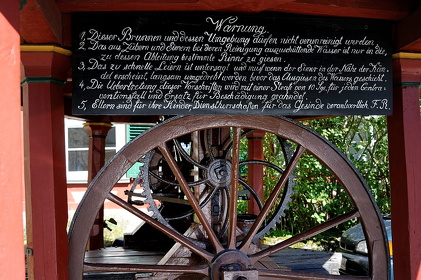 Warnung.
1, Dieser Brunnen und dessen Zubehör darf nicht verunreinigt werden.
2, Das zum Zubern und Eimern bei deren Reinigung auszuschüttende Wasser ist nur in der
zu dessen Ableitung bestimmte Rinne zu giesen.
3, Das zu schnelle Leiern ist untersagt und muß wenn der Eimer in der Nähe der Mün-
det erscheint, langsam umgedreht werden bevor das Ausgiesen des Wassers geschieht.
4, Die Uebertretung dieser Vorschriften wird mit einer Straf von 10 Sgr. für jeden Contra-
ventionsfall und den Ersatz des etwaigen Schadens geahndet.
5, Eltern sind für ihre Kinder, Dienstherrschaften für das Gesinde verantwortlich. F.R.